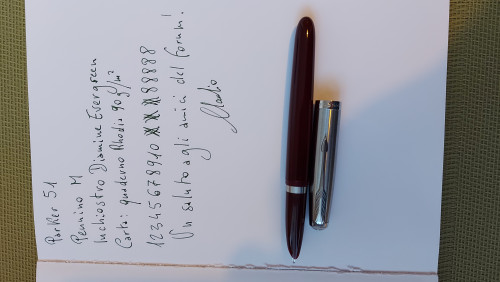 Parker 51
Pennino M
Inchiostro Diamine Evergreen
Carta: quaderno Rhodia 90 g/m²
12345678910 88888
Un saluto agli amici del forum!